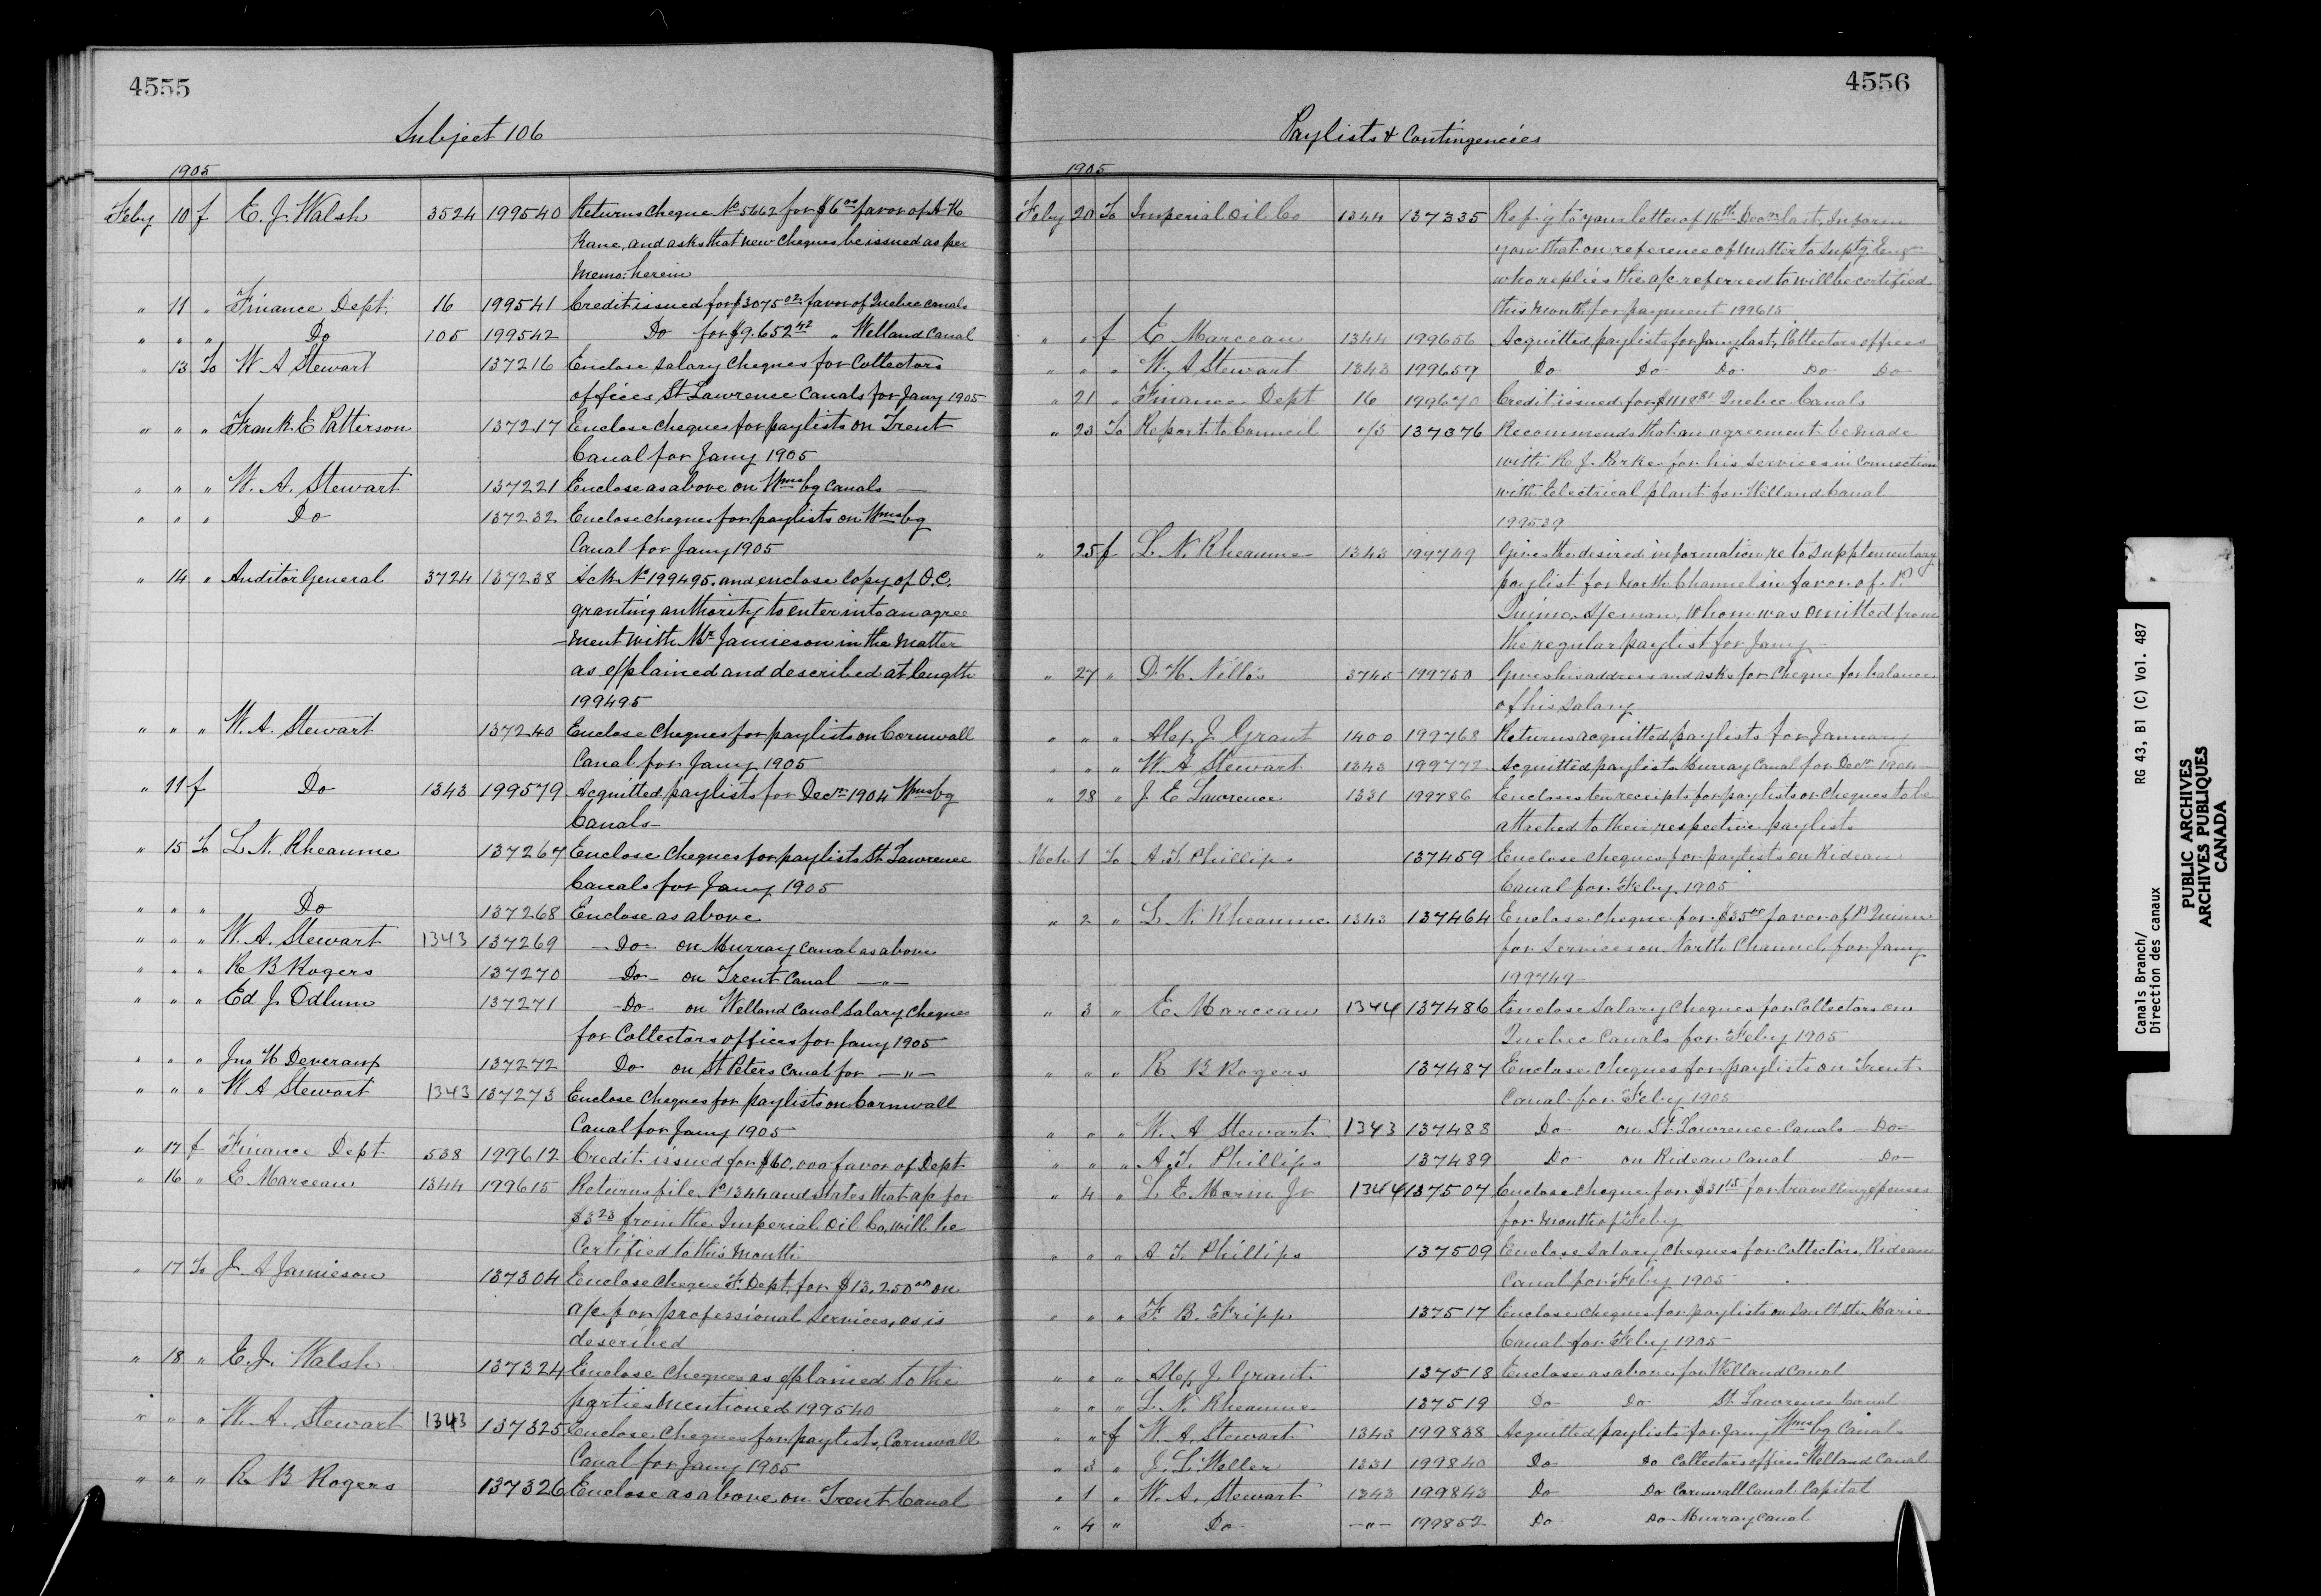 4555
Subject 106
1905
Feby 10 f E. J. Walsh 3524 199540 Returns cheque No 5662 for $6.00 favor of A K
Kane, and asks that new cheques be issued as per
memo: herein
" 11 " Finance Dept. 16 199541 Credit issued for $3075.02 favor of Quebec canals
" " " Do 105 199542 Do for $9.652.42 " Welland Canal
" 13 To W A Stewart 137216 Enclose salary cheques for Collectors
offices, St Lawrence Canals for Jany 1905
" " " Frank E Patterson 137217 Enclose cheques for paylists on Trent
Canal for Jany 1905
" " " W. A. Stewart 137221 Enclose as above on Wmsbg Canals
" " " Do 137232 Enclose cheques for paylists on Wmsbg
Canal for Jany 1905
" 14 " Auditor General 3724 137238 Ack No 199495, and enclose copy of O.C.
granting authority to enter into an agree
-ment with Mr Jamieson in the matter
as explained and described at length
199495
" " " W. A. Stewart 137240 Enclose cheques for paylists on Cornwall
Canal for Jany 1905
" 11 f Do 1343 199579 Acquitted paylists for Decr 1904 Wmsbg
Canals
" 15 To L. N. Rheaume 137267 Enclose cheques for paylists St. Lawrence
Canals for Jany 1905
" " " Do 137268 Enclose as above
" " " W. A. Stewart 1343 137269 Do on Murray Canal as above
" " " R B Rogers 137270 Do on Trent Canal "
" " " Ed J. Odlum 137271 Do on Welland Canal salary cheques
for Collectors offices for Jany 1905
" " " Jno H Deveramp 137272 Do on St Peters Canal for "
" " " W A Stewart 1343 137273 Enclose cheques for paylists on Cornwall
Canal for Jany 1905
" 17 f Finance Dept 538 199612 Credit issued for $60,000 favor of Dept
" 16 " E Marceau 1344 199615 Returns file No 1344 and states that a/c for
$3.23 from the Imperial Oil Co, will be
Certified to this month
" 17 To J. A Jamieson 137304 Enclose cheque F. Dept. for $13,250.00 on
a/c for professional services, as is
described
" 18 " E. J. Walsh 137324 Enclose cheques as explained to the
parties mentioned 199540
" " " W. A. Stewart 1343 137325 Enclose cheques for paylists, Cornwall
Canal for Jany 1905
" " " R B Rogers 137326 Enclose as above on Trent Canal
4556
Paylists & Contingencies
1905
Feby 20 To Imperial Oil Co 1344 137335 Refg to your letter of 16th Decr last, Inform
you that on reference of matter to Suptg Engr
who replies the a/c referred to will be certified
this month for payment 199615
" " f E Marceau 1344 199656 Acquitted paylists for Jany last, Collectors offices
" " " W. A Stewart 1343 199659 Do Do Do Do Do
" 21 " Finance Dept 16 199670 Credit issued for $1118.81 Quebec Canals
" 23 To Report to Council 137376 Recommends that an agreement be made
with R J. Parke for his services in connection
with Electrical plant for Welland Canal
199539
" 25 f L. N. Rheaume 1343 199749 Gives the desired information re to supplementary
paylist for North Channel in favor of P.
Quinn, whom was omitted from
the regular paylist for Jany
" 27 " D. H. 3745 199750 Gives his address and asks for cheque for balance
of his salary
" " " Alex J. Grant 1400 199768 Returns acquitted paylists for January
" " " W. A Stewart 1343 199772 Acquitted paylists Murray Canal for Decr 1904
" 28 " J E Lawrence 1331 199786 Encloses ten receipts for paylists or cheques to be
attached to their respective paylists
Mch 1 To A. T. Phillips 137459 Enclose cheques for paylists on Rideau
Canal for Feby 1905
" 2 " L. N. Rheaume 1343 137464 Enclose cheque for $35.00 favor of P Quinn
for services on North Channel, for Jany
199749
" 3 " E Marceau 1344 137486 Enclose Salary cheques for Collectors on
Quebec Canals for Feby 1905
" " " R B Rogers 137487 Enclose cheques for paylists on Trent
Canal for Feby 1905
" " " W. A Stewart 1343 137488 Do on St. Lawrence Canals Do
" " " A. T. Phillips 137489 Do on Rideau Canal Do
" 4 " L. E. Morin Jr 1344 137507 Enclose cheque for $31.15 for travelling expenses
for month of Feby
" " " A T. Phillips 137509 Enclose Salary cheques for Collectors, Rideau
Canal for Feby 1905
" " " F. B. Fripp 137517 Enclose cheques for paylists on Sault Ste Marie
Canal for Feby 1905
" " " Alex J. Grant 137518 Enclose as above for Welland Canal
" " " L. N. Rheaume 137519 Do Do St. Lawrence Canal
" " f W. A. Stewart 1343 199838 Acquitted paylists for Jany Wmsbg Canals
" 3 " J. L. Weller 1331 199840 Do Do Collectors offices Welland Canal
" 1 " W. A. Stewart 1343 199843 Do Do Cornwall Canal Capital
" 4 " Do " 199852 Do Do Murray Canal
Canals Branch/
Direction des canaux
RG 43, B1 (C) Vol. 487
PUBLIC ARCHIVES
ARCHIVES PUBLIQUES
CANADA